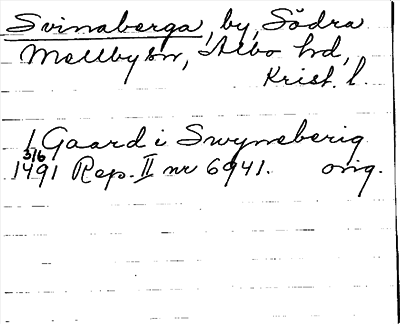 Svinaberga, by, Södra
Mellby sn, Albo hd,
Krist. l.
1 Gaard i Swyneberig
3/6
1491 Rep. II nr 6941. orig.